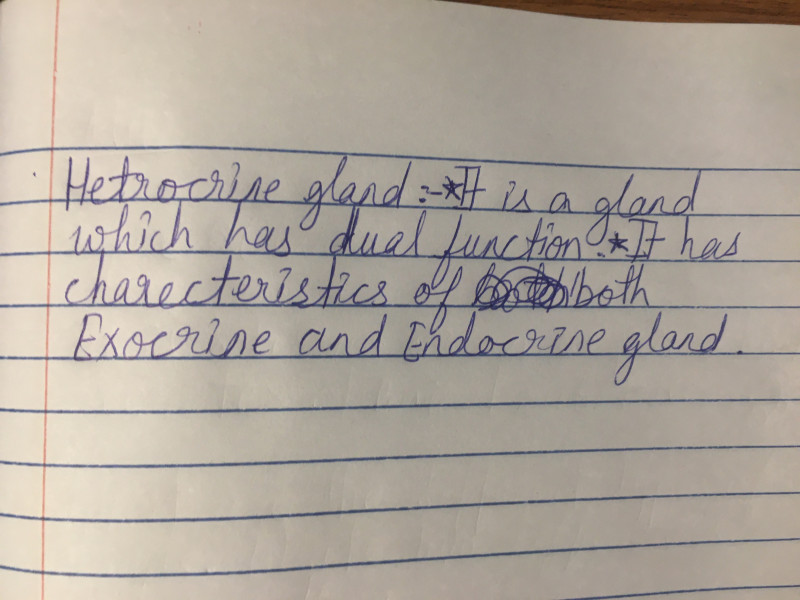 Hetrocrine gland :- *It is a gland
which has dual function. *It has
charecteristics of both
Exocrine and Endocrine gland.